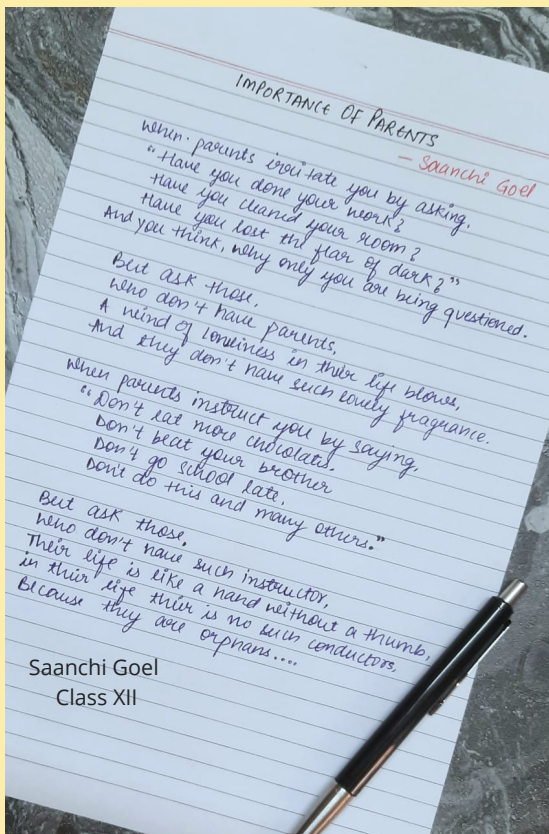 IMPORTANCE OF PARENTS
- Saanchi Goel
When parents irritate you by asking.
"Have you done your work?
Have you cleaned your room?
Have you lost the fear of dark?"
And you think, why only you are being questioned.
But ask those,
Who don't have parents,
A wind of loneliness in their life blows,
And they don't have such lovely fragrance.
When parents instruct you by saying,
"Don't eat more chocolate.
Don't beat your brother
Don't go school late.
Don't do this and many others."
But ask those,
Who don't have such instructor,
Their life is like a hand without a thumb,
in their life their is no such conductors,
Because they are orphans....
Saanchi Goel
Class XII